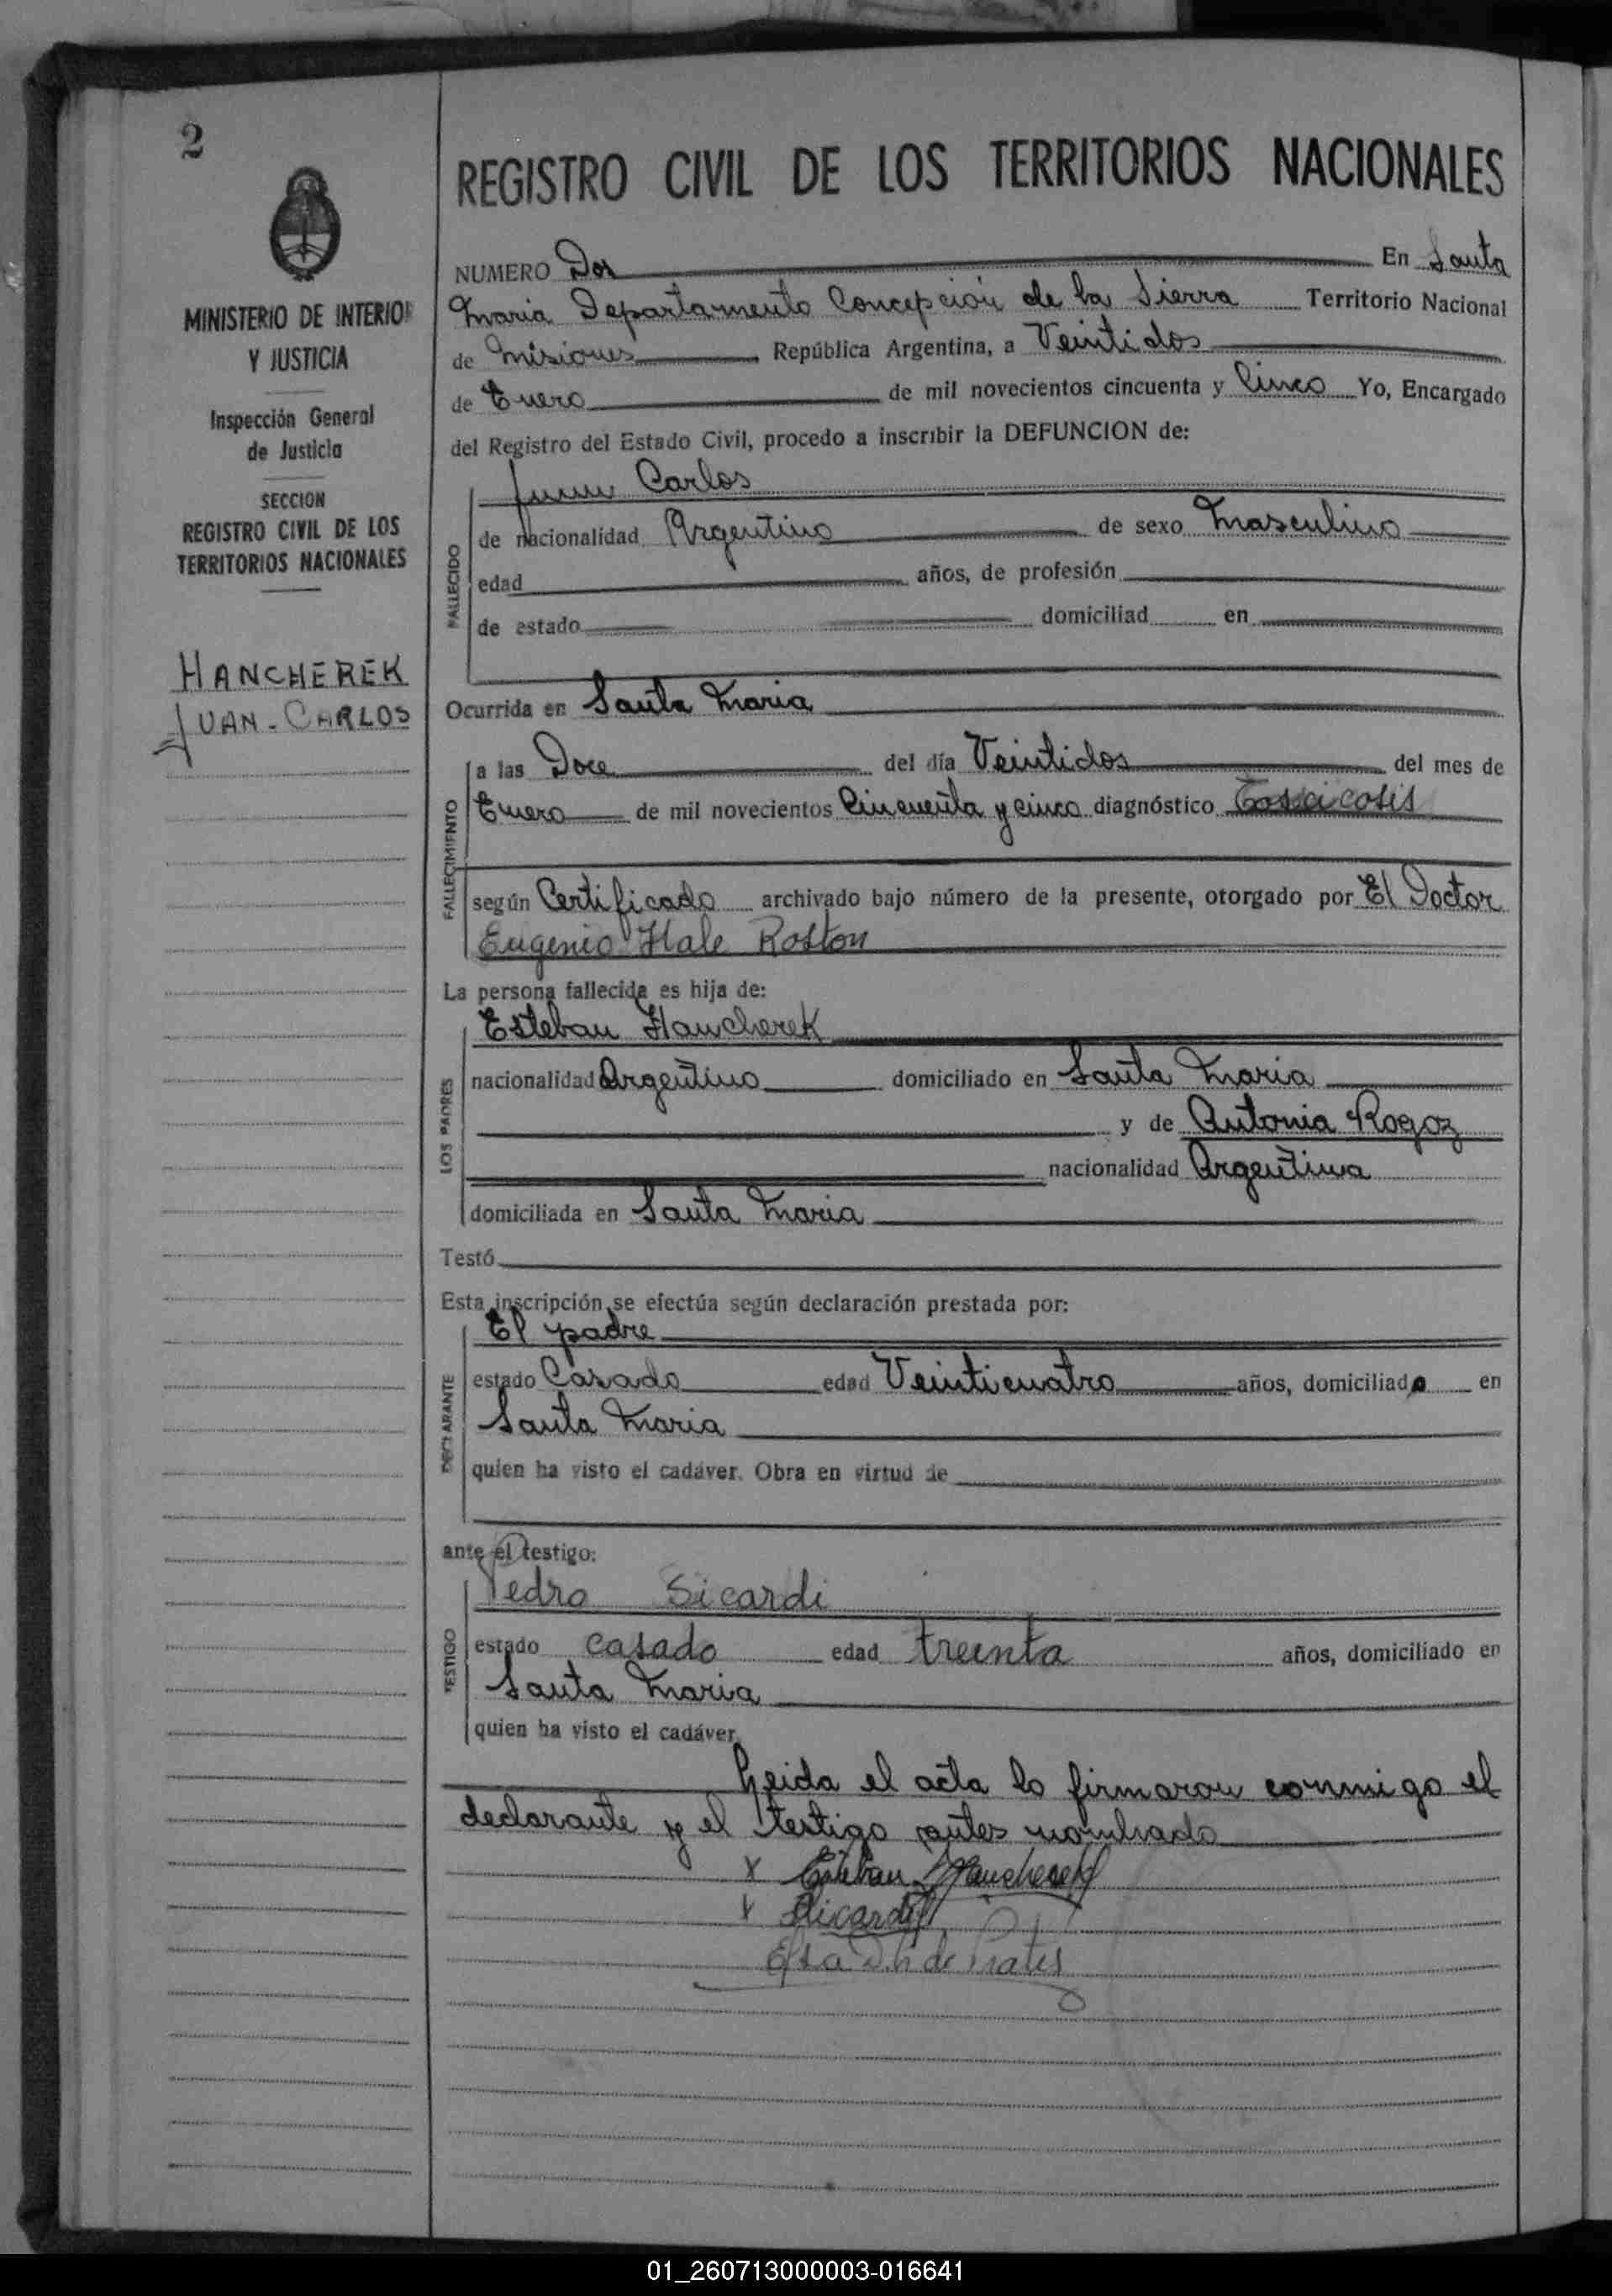 2
REGISTRO CIVIL DE LOS TERRITORIOS NACIONALES
MINISTERIO DE INTERIOR
Y JUSTICIA
Inspección General
de Justicia
SECCION
REGISTRO CIVIL DE LOS
TERRITORIOS NACIONALES
HANCHEREK
JUAN-CARLOS
NUMERO Dos En Santa
Maria Departamento Concepción de la Sierra Territorio Nacional
de Misiones República Argentina, a Veintidos
de Enero de mil novecientos cincuenta y Cinco Yo, Encargado
del Registro del Estado Civil, procedo a inscribir la DEFUNCION de:
Juan Carlos
FALLECIDO
de nacionalidad Argentino de sexo Masculino
edad años, de profesión
de estado domiciliad en
Ocurrida en Santa Maria
FALLECIMIENTO
a las Doce del día Veintidos del mes de
Enero de mil novecientos Cincuenta y cinco diagnóstico
según Certificado archivado bajo número de la presente, otorgado por El Doctor
Eugenio Hale Roston
La persona fallecida es hija de:
LOS PADRES
Esteban Hancherek
nacionalidad Argentino domiciliado en Santa Maria
y de Antonia Rogoz
nacionalidad Argentina
domiciliada en Santa Maria
Testó
Esta inscripción se efectúa según declaración prestada por:
DECLARANTE
El padre
estado Casado edad Veinticuatro años, domiciliado en
Santa Maria
quien ha visto el cadáver. Obra en virtud de
ante el testigo:
TESTIGO
Pedro Sicardi
estado casado edad treinta años, domiciliado en
Santa Maria
quien ha visto el cadáver.
Leida el acta lo firmaron conmigo el
declarante y el testigo antes nombrado
x Esteban Hancherek
x Sicardi
Elsa de Prates
01_260713000003-016641